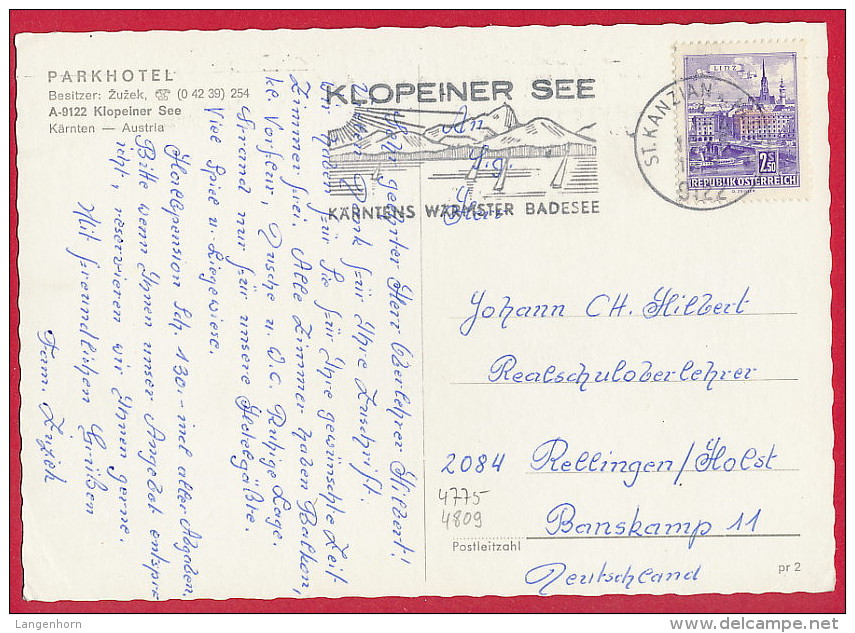 PARKHOTEL
Besitzer: Žužek, ☎ (0 42 39) 254
A-9122 Klopeiner See
Kärnten — Austria
KLOPEINER SEE
KÄRNTENS WÄRMSTER BADESEE
ST. KANZIAN
9122
LINZ
2.50
REPUBLIK ÖSTERREICH
Sehr geehrter Herr Oberlehrer Hilbert!
Vielen Dank für Ihre Zuschrift.
Wir haben für Sie für Ihre gewünschte Zeit
Zimmer frei. Alle Zimmer haben Balkon,
Vorfleur, Dusche u. W.C. Ruhige Lage.
Strand nur für unsere Hotelgäste.
Viel Spiel u. Liegewiese.
Halbpension Sch. 130,- incl aller Abgaben.
Bitte wenn Ihnen unser Angebot entspre
icht, reservieren wir Ihnen gerne.
Mit freundlichen Grüßen
Fam. Žužek
An
Herrn
Johann CH. Hilbert
Realschuloberlehrer
2084 Rellingen/Holst
4775
4809
Banskamp 11
Postleitzahl
Deutschland
pr 2
Langenhorn
delcampe.net